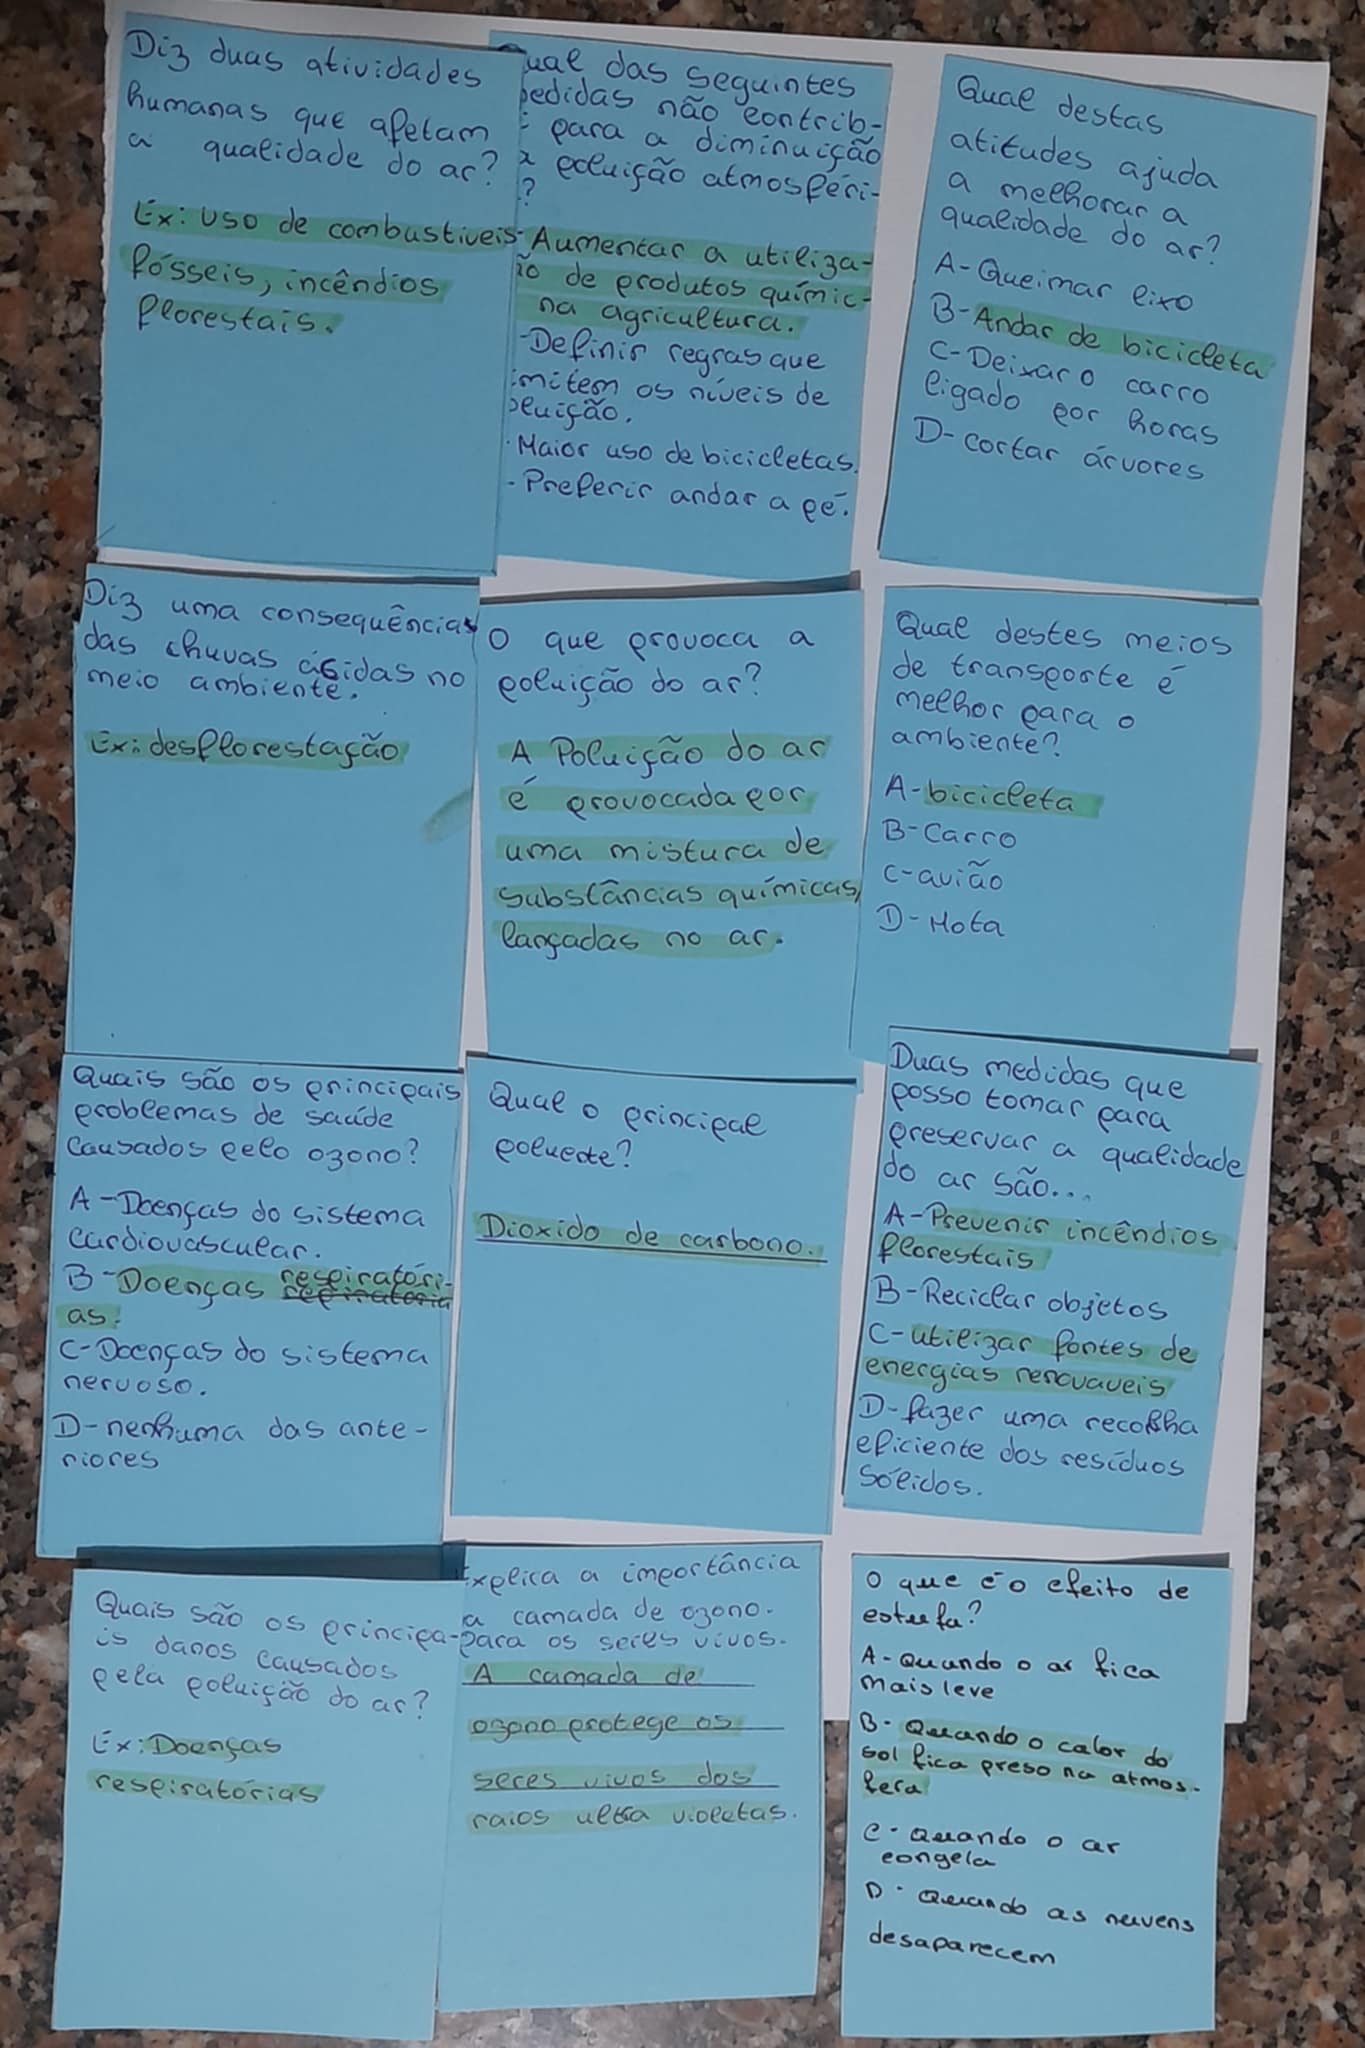 Diz duas atividades
humanas que afetam
a qualidade do ar?
Ex: Uso de combustiveis
fósseis, incêndios
florestais.
ual das seguintes
edidas não contrib-
para a diminuição
a poluição atmosféri-
?
Aumentar a utiliza-
ão de produtos químic-
na agricultura.
-Definir regras que
imitem os níveis de
oluição.
-Maior uso de bicicletas.
-Preferir andar a pé.
Qual destas
atitudes ajuda
a melhorar a
qualidade do ar?
A-Queimar lixo
B-Andar de bicicleta
C-Deixar o carro
ligado por horas
D-cortar árvores
Diz uma consequências
das chuvas ácidas no
meio ambiente.
Ex: desflorestação
O que provoca a
poluição do ar?
A Poluição do ar
é provocada por
uma mistura de
substâncias químicas,
lançadas no ar.
Qual destes meios
de transporte é
melhor para o
ambiente?
A-bicicleta
B-Carro
C-avião
D-Mota
Quais são os principais
problemas de saúde
causados pelo ozono?
A-Doenças do sistema
cardiovascular.
B-Doenças respiratóri-
as.
C-Doenças do sistema
nervoso.
D-nenhuma das ante-
riores
Qual o principal
poluente?
Dioxido de carbono.
Duas medidas que
posso tomar para
preservar a qualidade
do ar são...
A-Prevenir incêndios
florestais
B-Reciclar objetos
C-utilizar fontes de
energias renovaveis
D-fazer uma recolha
eficiente dos resíduos
sólidos.
Quais são os principa-
is danos causados
pela poluição do ar?
Ex: Doenças
respiratórias
Explica a importância
a camada de ozono.
para os seres vivos.
A camada de
ozono protege os
seres vivos dos
raios ultra violetas.
O que é o efeito de
estufa?
A-Quando o ar fica
mais leve
B-Quando o calor do
sol fica preso na atmos-
fera
C-Quando o ar
congela
D-Quando as nuvens
desaparecem